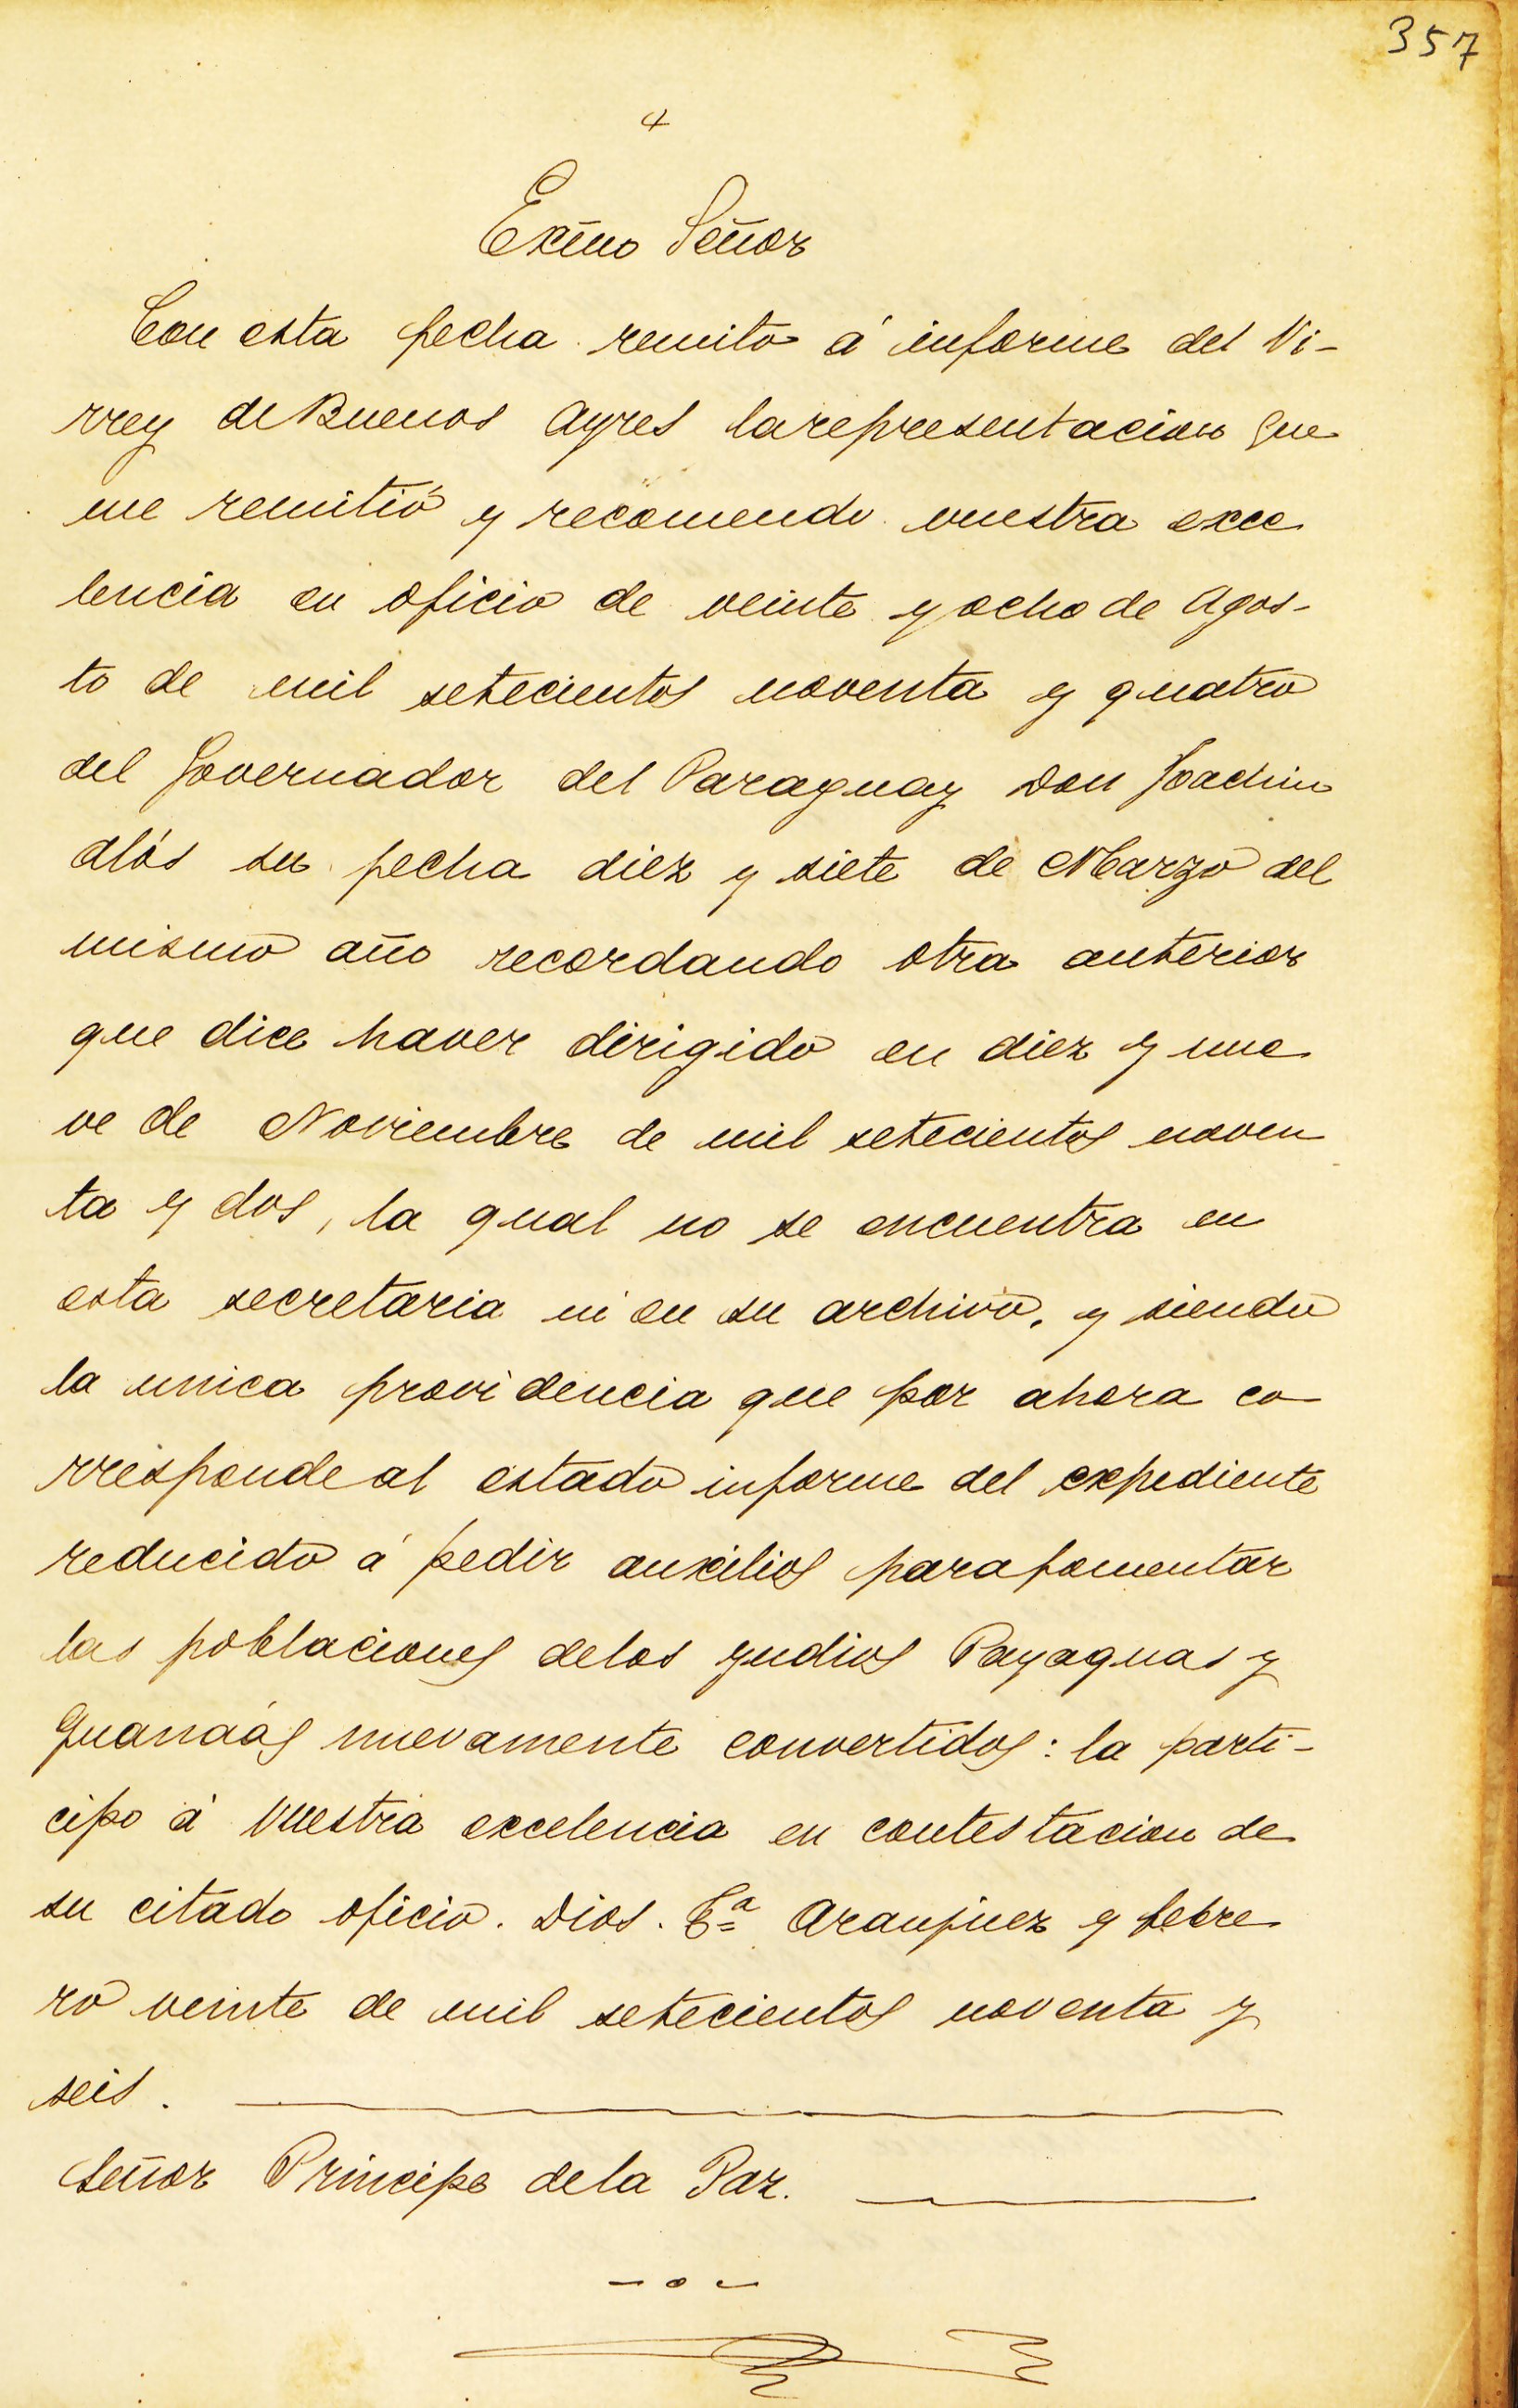 357
4
Exm̃o Señor
Con esta fecha remito á informe del Vi-
rrey de Buenos Ayres la representacion que
me remitió y recomendo vuestra exce
lencia en oficio de veinte y ocho de Agos-
to de mil setecientos noventa y quatro
del Governador del Paraguay Don Joachin
Alós su fecha diez y siete de Marzo del
mismo año recordando otra anterior
que dice haver dirigido en diez y nue
ve de Noviembre de mil setecientos noven
ta y dos, la qual no se encuentra en
esta secretaria ni en su archivo, y siendo
la unica providencia que por ahora co
rresponde al estado informe del expediente
reducido á pedir auxilios para fomentar
las poblaciones de los yndios Payaguas y
Guanaás nuevamente convertidos: la parti-
cipo á Vuestra excelencia en contestacion de
su citado oficio. Dios. Aranjuez y febre
ro veinte de mil setecientos noventa y
seis.
Señor Principe de la Paz.